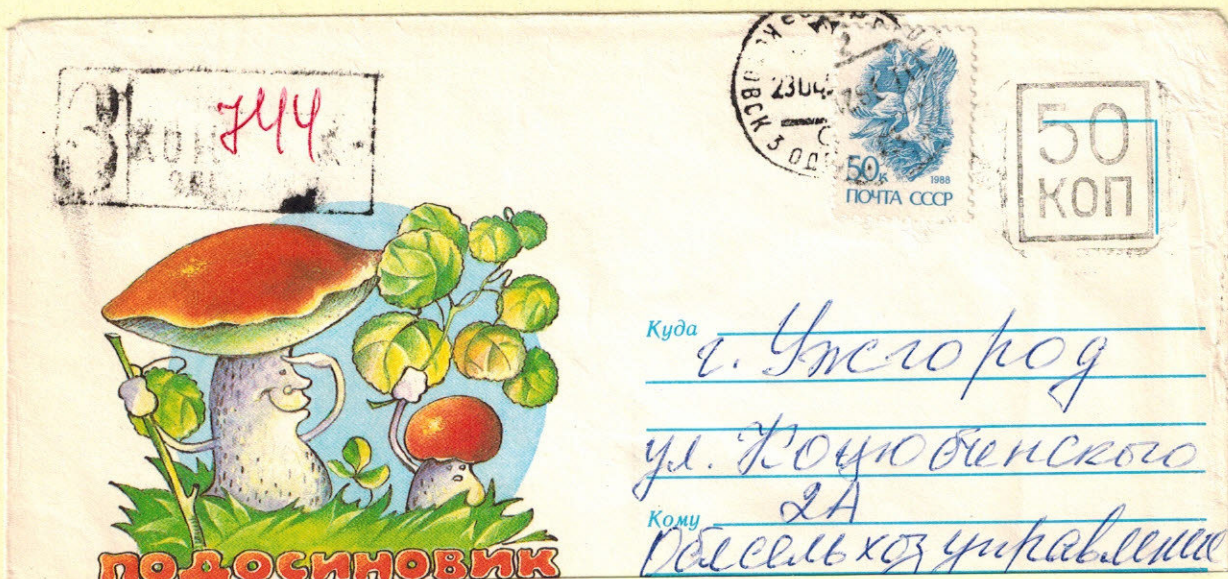 З
744
50к
1988
ПОЧТА СССР
50
КОП
Куда
г. Ужгород
ул. Коцюбинского
2А
Кому
Облсельхозуправление
ПОДОСИНОВИК